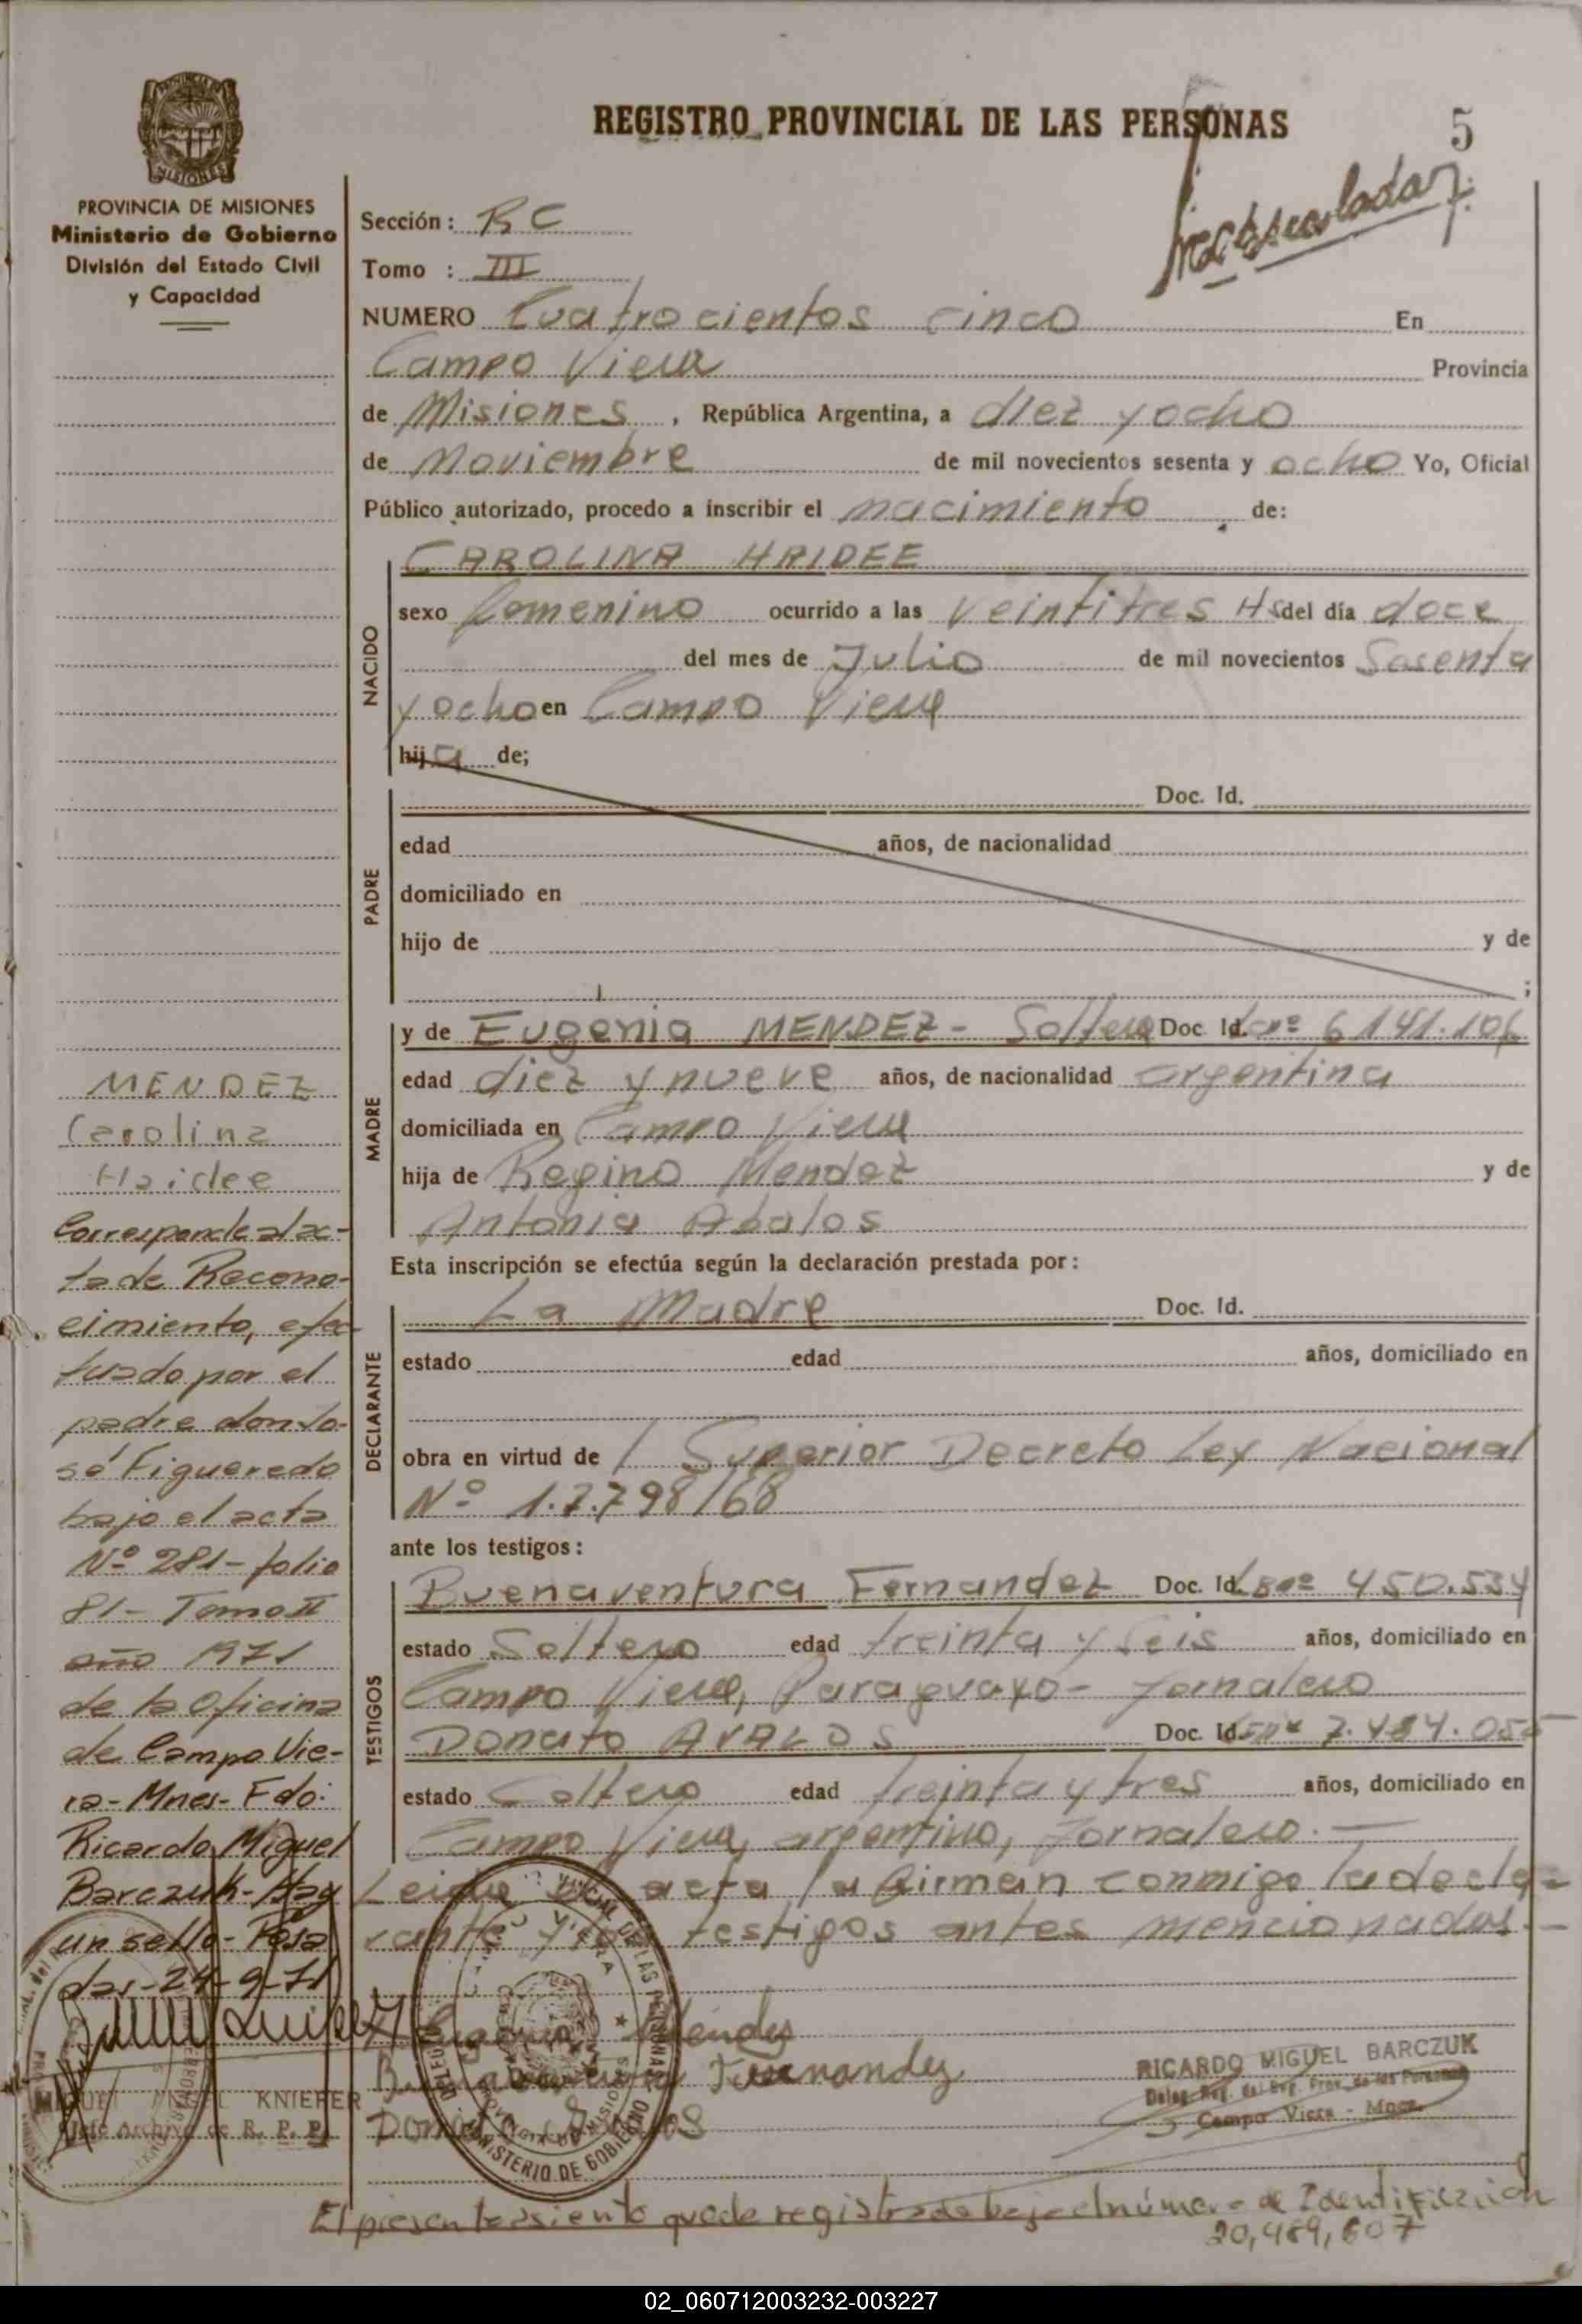 REGISTRO PROVINCIAL DE LAS PERSONAS
5
PROVINCIA DE MISIONES
Ministerio de Gobierno
División del Estado Civil
y Capacidad
Sección: RC
Tomo : III
NUMERO Cuatrocientos cinco En
Campo Viera Provincia
de Misiones, República Argentina, a diez y ocho
de Noviembre de mil novecientos sesenta y ocho Yo, Oficial
Público autorizado, procedo a inscribir el nacimiento de:
NACIDO
CAROLINA HAIDEE
sexo femenino ocurrido a las veintitres Hs del día doce
del mes de Julio de mil novecientos Sesenta
y ocho en Campo Viera
hija de;
PADRE
Doc. Id.
edad años, de nacionalidad
domiciliado en
hijo de y de
;
MADRE
y de Eugenia MENDEZ - Soltera Doc. Id. nº 6141.106
edad diez y nueve años, de nacionalidad argentina
domiciliada en Campo Viera
hija de Regino Mendez y de
Antonia Abalos
Esta inscripción se efectúa según la declaración prestada por:
DECLARANTE
La Madre Doc. Id.
estado edad años, domiciliado en
obra en virtud de / Superior Decreto Ley Nacional
Nº 17.798/68
ante los testigos:
TESTIGOS
Buenaventura Fernandez Doc. Id. nº 450.534
estado Soltero edad treinta y seis años, domiciliado en
Campo Viera, Paraguayo - Jornalero
Donato AVALOS Doc. Id.
estado Soltero edad treinta y tres años, domiciliado en
Campo Viera, argentino, Jornalero.-
Leida acta la firman conmigo la decla-
rante y los testigos antes mencionados.-
Eugenia Méndez
Buenaventura Fernandez
Donato
RICARDO MIGUEL BARCZUK
Deleg. Reg. del Reg. Prov. de las Personas
Campo Viera - Mnes.
El presente asiento queda registrado bajo el número de Identificación
20,489,607
MENDEZ
Carolina
Haidee
Corresponde al ac-
ta de Recono-
cimiento, efec
tuado por el
padre don Jo-
sé Figueredo
bajo el acta
Nº 281 - folio
81 - Tomo II
año 1971
de la Oficina
de Campo Vie-
ra - Mnes - Fdo:
Ricardo Miguel
Barczuk - Hay
un sello - Posa
das - 24-9-71
MIGUEL ANGEL KNIEPER
Jefe Archivo de R. P. P.
MINISTERIO DE GOBIERNO
02_060712003232-003227